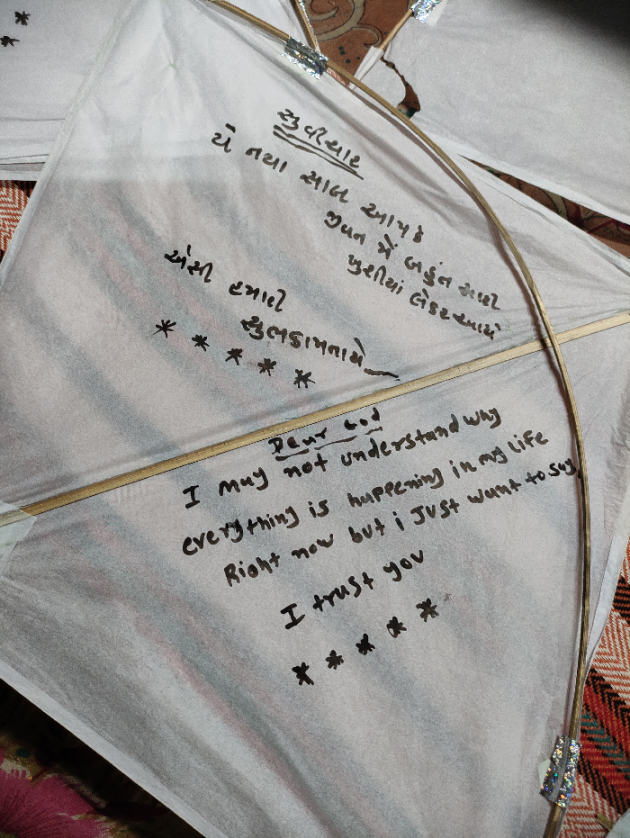 સુવિચાર
યે નયા સાલ આપકે
જીવન મેં બહુત સારી
ખુશીયાં લેકર આયે
એસી હમારી
શુભકામનાયે
* * * * *
Dear God
I may not understand why
everything is happening in my life
Right now but i Just want to say,
I trust you
* * * * *